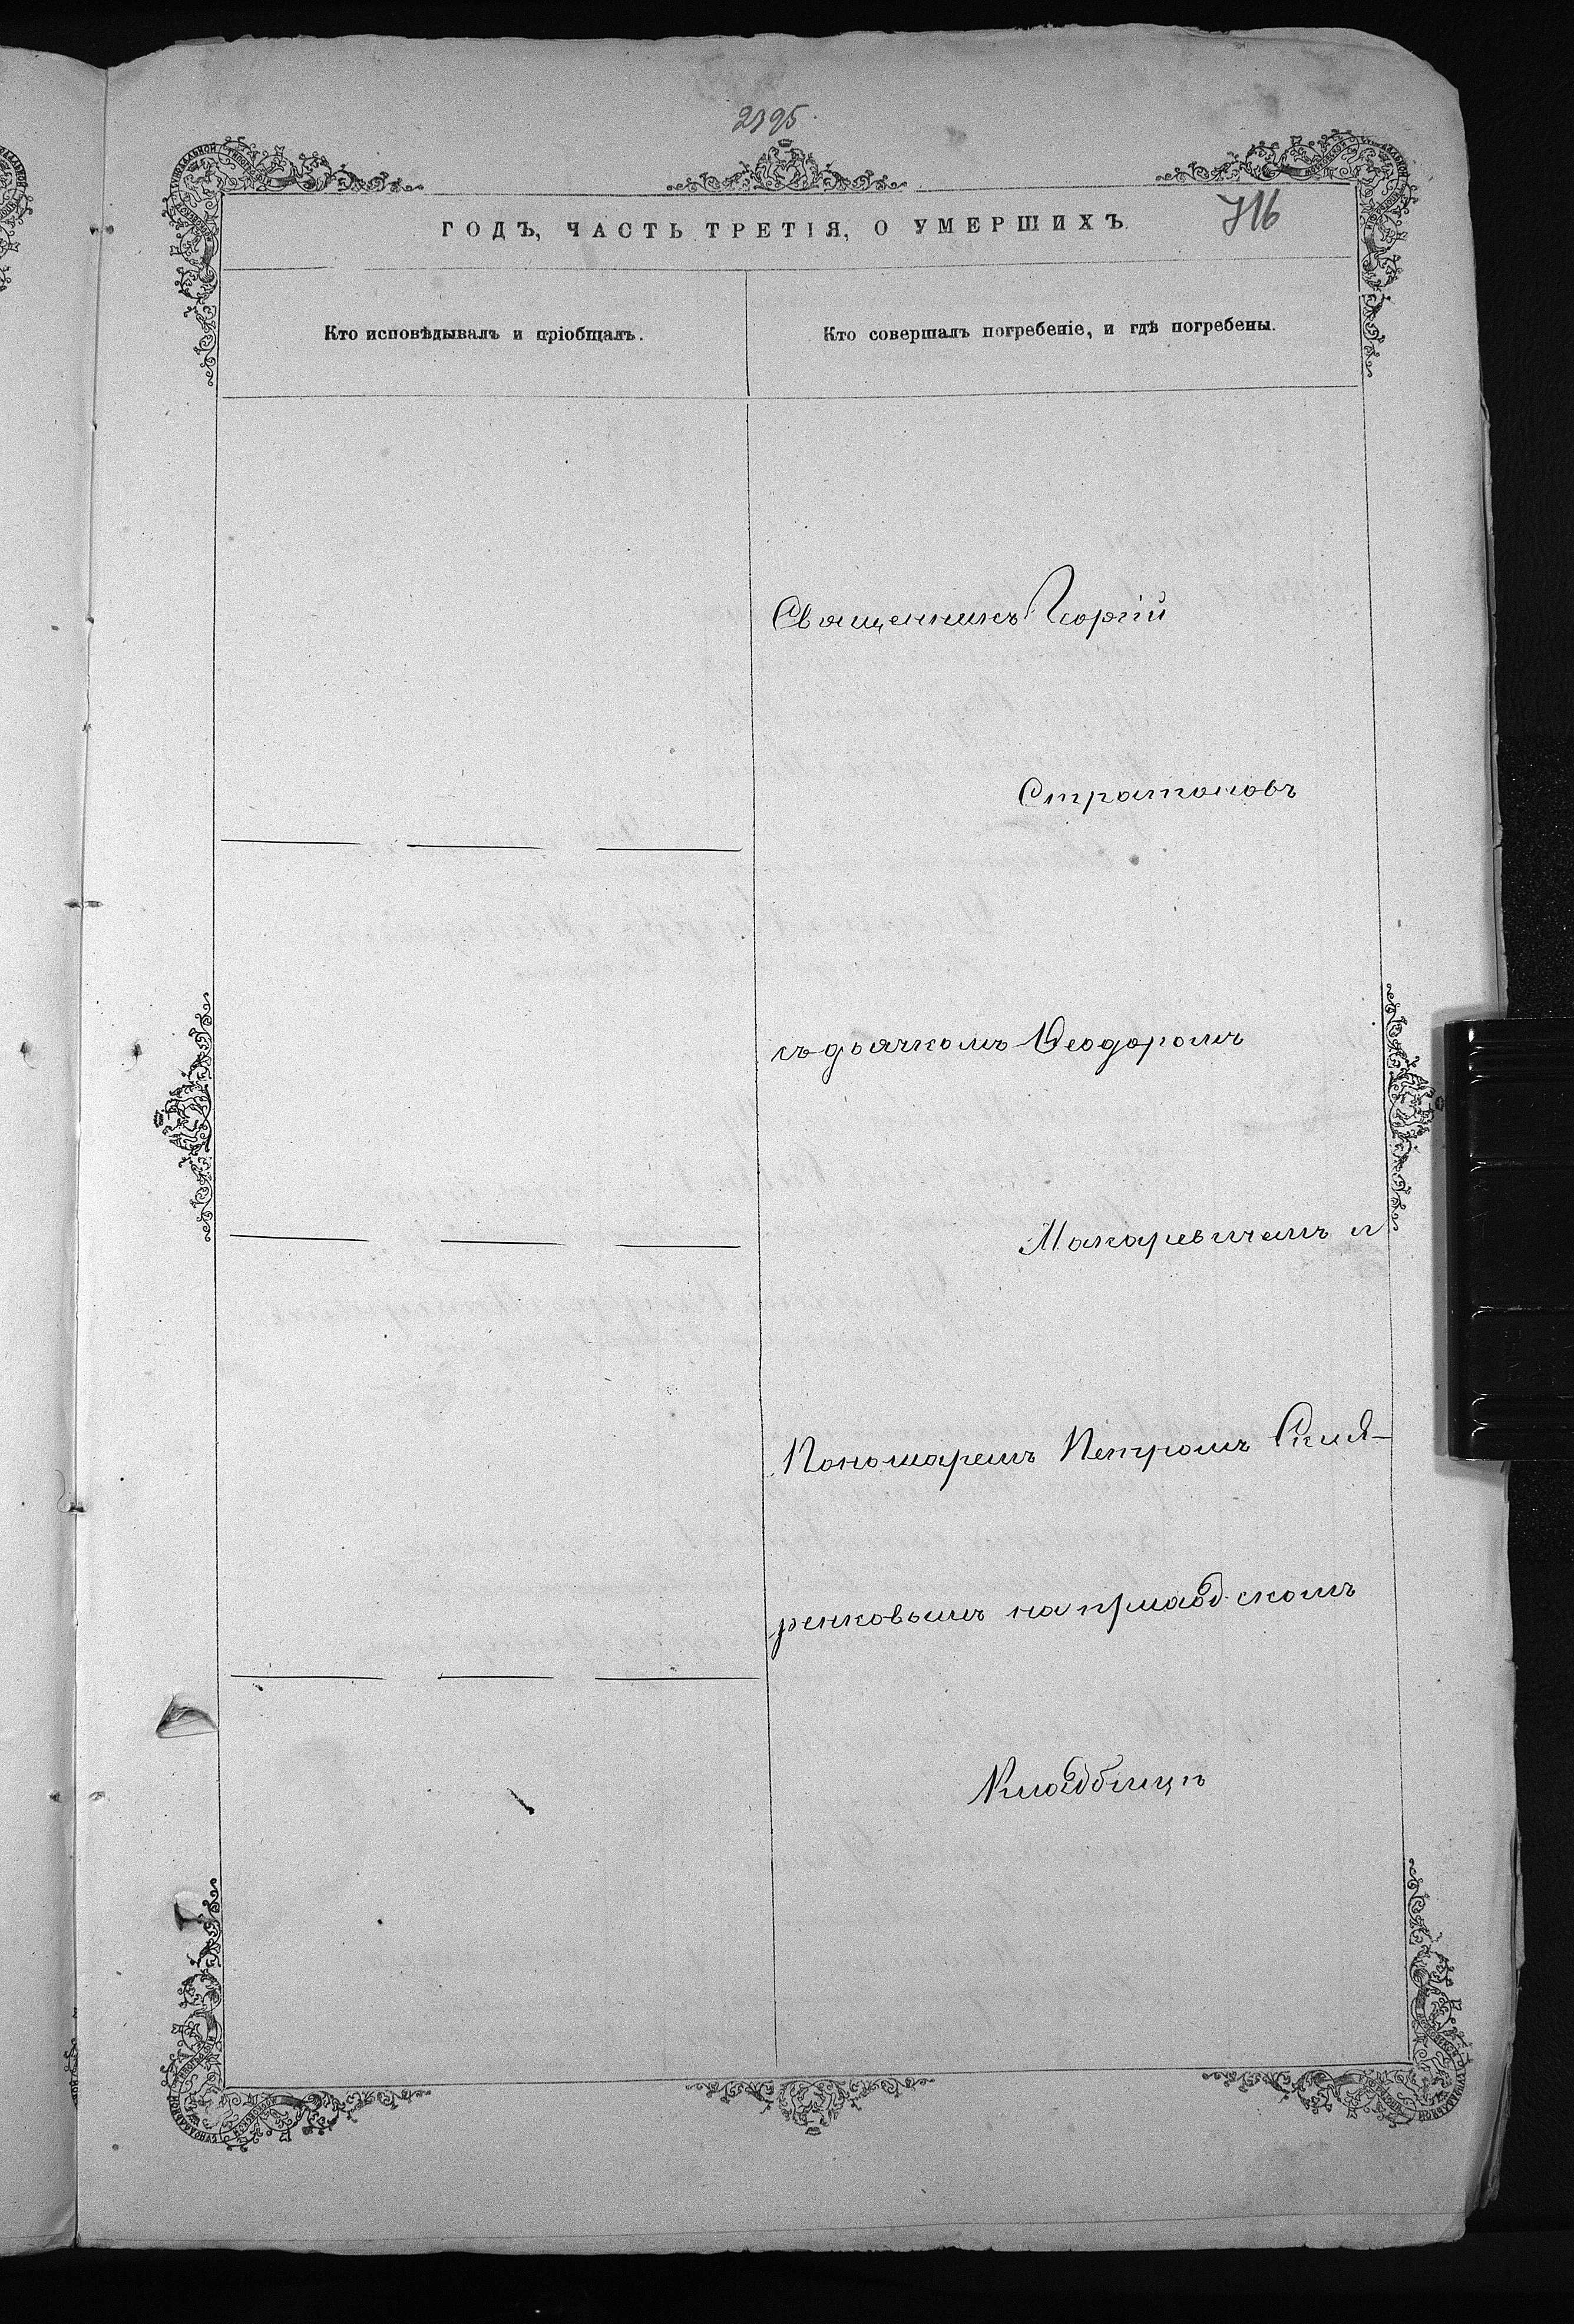 2795.
716
ГОДЪ, ЧАСТЬ ТРЕТІЯ, О УМЕРШИХЪ.
Кто исповѣдывалъ и пріобщалъ.
Кто совершалъ погребеніе, и гдѣ погребены.
Священникъ Георгій
Стратоновъ
съ дьячкомъ Ѳеодоромъ
Макаревичемъ и
Пономаремъ Петромъ Скля-
ренковымъ на приход.скомъ
Кладбищѣ